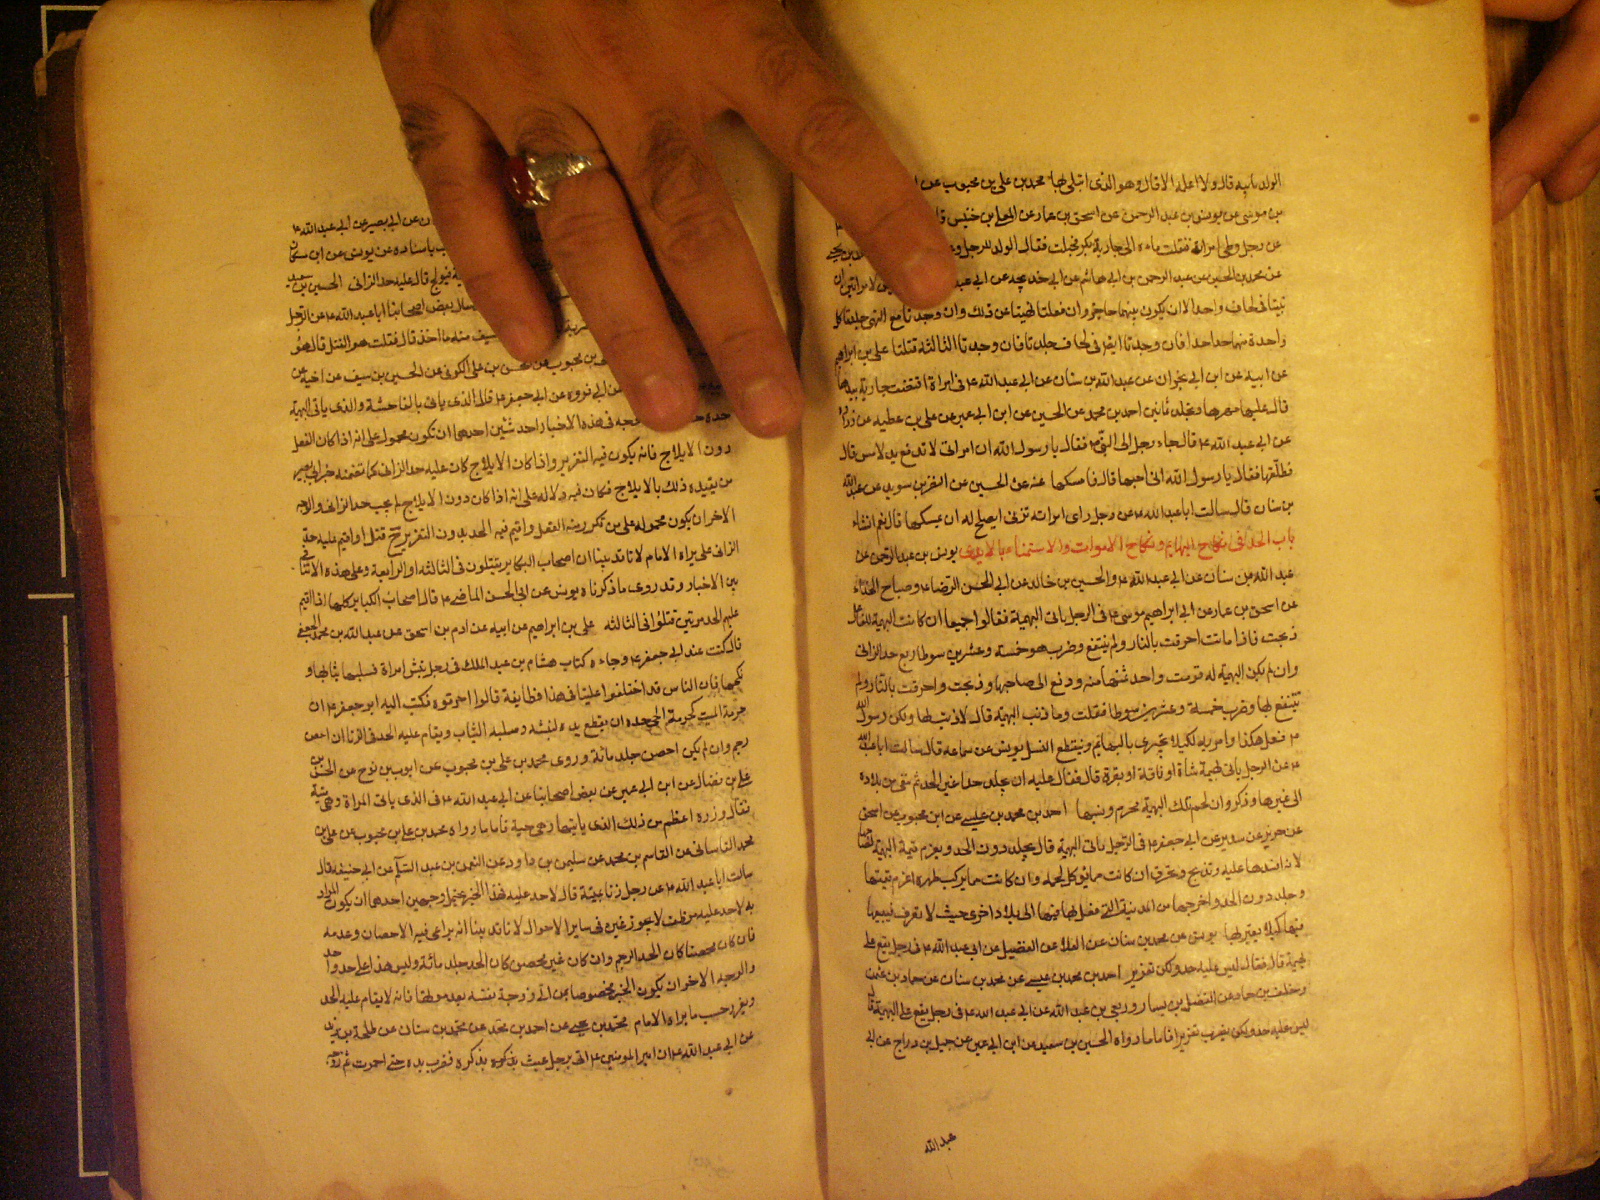 الولد بابيه قال ولا اعلمه الا قال وهو الذى ابتلى بها محمد بن على بن محبوب عن ا
بن موسى عن يونس بن عبد الرحمن عن اسحق بن عمار عن المعلى بن خنيس قا
عن رجل وطى امراة فنقلت ماءه الى جارية بكر فحبلت فقال الولد للرجل وع
عن محمد بن الحسين عن عبد الرحمن بن ابى هاشم عن ابى خديجه عن ابى عبد لامراتين ان
تبيتا فى لحاف واحد الا ان يكون بينهما حاجز وان فعلتا نهيتا عن ذلك وان وجدتا مع النهى جلدتا كل
واحدة منهما حدا حدا فان وجدتا ايضا فى لحاف جلدتا فان وجدتا الثالثة قتلتا على بن ابراهيم
عن ابيه عن ابن ابى نجران عن عبد الله بن سنان عن ابى عبد الله ع فى امراة افتضت جارية بيدها
قال عليها مهرها وتجلد ثمانين احمد بن محمد عن الحسين عن ابن ابى عمير عن على بن عطيه عن زرارة
عن ابى عبد الله ع قال جاء رجل الى النبى ص فقال يا رسول الله ان امراتى لا تدفع يد لامس قال
فطلقها فقال يا رسول الله انى احبها قال فامسكها عنه عن الحسين عن النضر بن سويد عن عبد الله
بن سنان قال سالت ابا عبد الله ع عن رجل راى امراته تزنى ايصلح له ان يمسكها قال نعم انشاء
باب الحد فى نكاح البهايم ونكاح الاموات والاستمناء بالايدى يونس بن عبد الرحمن عن
عبد الله بن سنان عن ابى عبد الله ع والحسين بن خالد عن ابى الحسن الرضا ع وصباح الحذاء
عن اسحق بن عمار عن ابى ابراهيم موسى ع فى الرجل ياتى البهيمة فقالوا جميعا ان كانت البهيمة للفاعل
ذبحت فاذا ماتت احرقت بالنار ولم ينتفع وضرب هو خمسة وعشرين سوطا ربع حد الزانى
وان لم يكن البهيمة له قومت واخذ ثمنها منه ودفع الى صاحبها وذبحت واحرقت بالنار ولم
ينتفع بها وضرب خمسة وعشرين سوطا فقلت وما ذنب البهيمة قال لا ذنب لها ولكن رسول الله
ص فعل هكذا وامر به لكيلا يجترى بالبهايم وينقطع النسل يونس عن سماعه قال سالت ابا عبد الله
ع عن الرجل ياتى بهيمة شاة او ناقة او بقرة قال فقال عليه ان يجلد حدا غير الحد ثم ينفى من بلاده
الى غيرها وذكروا ان لحم تلك البهيمة محرم ولبنها احمد بن محمد بن عيسى عن ابن محبوب عن اسحق
عن حريز عن سدير عن ابى جعفر ع فى الرجل ياتى البهيمة قال يجلد دون الحد ويغرم قيمة البهيمة لصاحبها
لانه افسدها عليه وتذبح وتحرق ان كانت مما يوكل لحمه وان كانت مما يركب ظهره اغرم قيمتها
وجلد دون الحد واخرجها من المدينة التى فعل بها فيها الى بلاد اخرى حيث لا تعرف فيبيعها
فيها كيلا يعير بها يونس عن محمد بن سنان عن العلاء عن الفضيل عن ابى عبد الله ع فى رجل يقع على
بهيمة قال فقال ليس عليه حد ولكن تعزير احمد بن محمد بن عيسى عن محمد بن سنان عن حماد بن عثمن
وخلف بن حماد عن الفضيل بن يسار وربعى بن عبد الله عن ابى عبد الله ع فى رجل يقع على البهيمة قال
ليس عليه حد ولكن يضرب تعزيرا فاما ما رواه الحسين بن سعيد عن ابن ابى عمير عن جميل بن دراج عن ابى
عبد الله
ن عن ابى بصير عن ابى عبد الله ع
ب باسناده عن يونس عن ابن سنان
ة فيولج قال عليه حد الزانى الحسين بن سعيد
سال بعض اصحابنا ابا عبد الله ع عن الرجل
ضربة سيف منه ما اخذ قال فقلت هو القتل قال هو
بن محبوب عن على الكوفى عن الحسين بن سيف عن اخيه عن
عن ابى فروه عن ابى جعفر ع قال الذى ياتى بالفاحشة والذى ياتى البهيمة
حده فى هذه الاخبار احد شيئين احدهما ان تكون محمولة على انه اذا كان الفعل
دون الايلاج فانه يكون فيه التعزير واذا كان الايلاج كان عليه حد الزانى كما تضمنه خبر ابى بصير
من تقييده ذلك بالايلاج فكان فيه دلالة على انه اذا كان دون الايلاج لم يجب حد الزانى والوجه
الاخر ان يكون محمولة على من تكرر منه الفعل واقيم فيه الحد بدون التعزير ح قتل او اقيم عليه حد
الزانى على ما يراه الامام لانا قد بينا ان اصحاب الكباير يقتلون فى الثالثه او الرابعة وعلى هذه لا تنافى
بين الاخبار وقد روى ما ذكرناه يونس عن ابى الحسن الماضى ع قال اصحاب الكباير كلها اذا اقيم
عليهم الحد مرتين قتلوا فى الثالثه على بن ابراهيم عن ابيه عن ادم بن اسحق عن عبد الله بن محمد الجعفى
قال كنت عند ابى جعفر ع وجاءه كتاب هشام بن عبد الملك فى رجل نبش امراة فسلبها ثيابها و
نكحها فان الناس قد اختلفوا علينا فى هذا فطايفة قالوا احرقوه فكتب اليه ابو جعفر ع ان
حرمة الميت كحرمة الحى حده ان يقطع يده لنبشه وسلبه الثياب ويقام عليه الحد فى الزنا ان احصن
رجم وان لم يكن احصن جلد مائة وروى محمد بن على بن محبوب عن ايوب بن نوح عن الحسن بن
على بن فضال عن ابن ابى عمير عن بعض اصحابنا عن ابى عبد الله ع فى الذى ياتى المراة وهى ميتة
فقال وزره اعظم من ذلك الذى ياتيها وهى حية فاما ما رواه محمد بن على بن محبوب عن على بن
محمد القاسانى عن القاسم بن محمد عن سليمن بن داود عن النعمن بن عبد السلام عن ابى حنيفة قال
سالت ابا عبد الله ع عن رجل زنا بميتة قال لا حد عليه فهذا الخبر يحتمل وجهين احدهما ان يكون المراد
به لا حد عليه موظف لا يجوز غيره فى ساير الاحوال لانا قد بينا انه يراعى فيه الاحصان وعدمه
فان كان محصنا كان الحد الرجم وان كان غير محصن كان الحد جلد مائة وليس هذا على حد واحد
والوجه الاخر ان يكون الخبر مخصوصا بمن اتى زوجة نفسه بعد موتها فانه لا يقام عليه الحد
ويعزر حسب ما يراه الامام محمد بن يحيى عن احمد بن محمد عن محمد بن سنان عن طلحة بن زيد
عن ابى عبد الله ع ان امير المومنين ع اتى برجل عبث بذكره فضرب يده حتى احمرت ثم زوجه